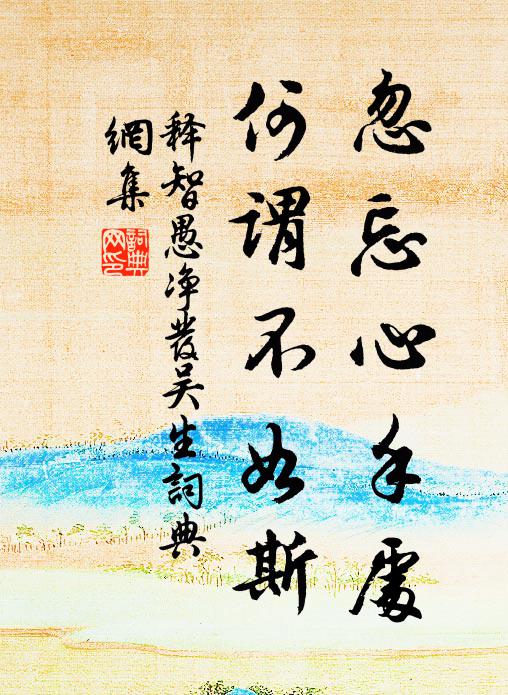 忽忘心手處
何謂不如斯
释智愚净發吴生詞典
網集
詞典
网印